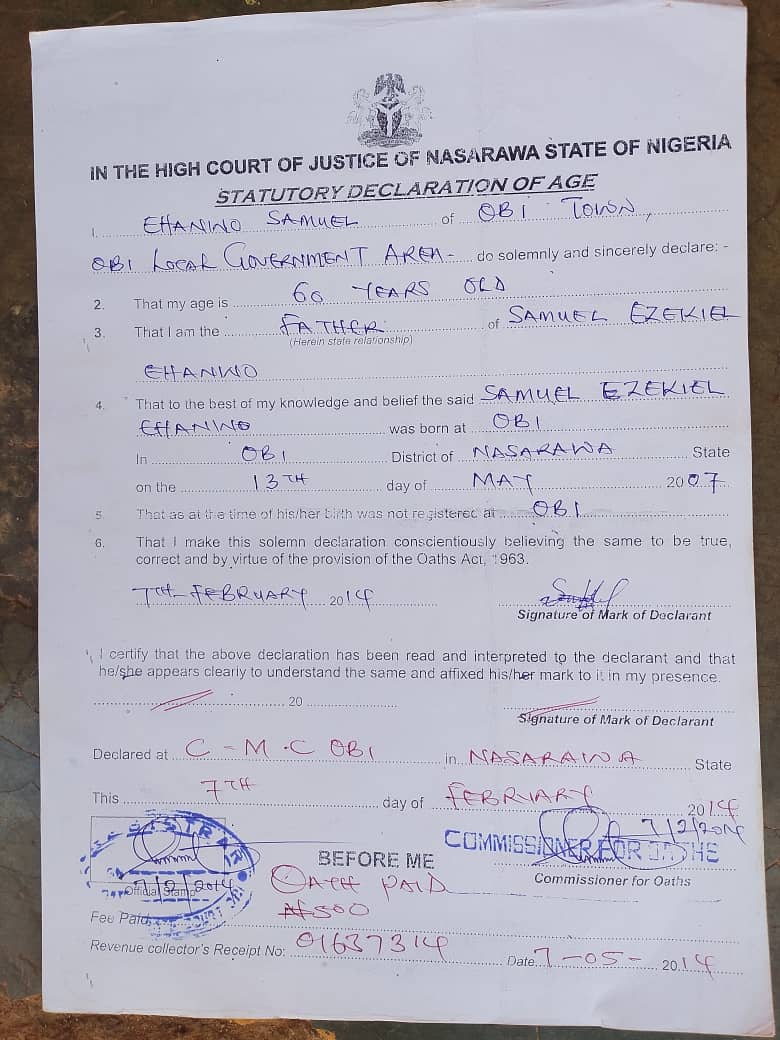 IN THE HIGH COURT OF JUSTICE OF NASARAWA STATE OF NIGERIA
STATUTORY DECLARATION OF AGE
1. EHANINO SAMUEL of OBI TOWN,
OBI LOCAL GOVERNMENT AREA- do solemnly and sincerely declare: -
2. That my age is 60 YEARS OLD
3. That I am the FATHER of SAMUEL EZEKIEL
(Herein state relationship)
EHANINO
4. That to the best of my knowledge and belief the said SAMUEL EZEKIEL
EHANINO was born at OBI
In OBI District of NASARAWA State
on the 13TH day of MAY 2007
5. That as at the time of his/her birth was not registered at OBI
6. That I make this solemn declaration conscientiously believing the same to be true,
correct and by virtue of the provision of the Oaths Act, 1963.
7TH FEBRUARY 2014
Signature of Mark of Declarant
I certify that the above declaration has been read and interpreted to the declarant and that
he/she appears clearly to understand the same and affixed his/her mark to it in my presence.
20
Signature of Mark of Declarant
Declared at C-M.C OBI in NASARAWA State
This 7TH day of FEBRUARY 2014
7/2/2014
COMMISSIONER FOR OATHS
BEFORE ME
Commissioner for Oaths
7/2/2014
Official Stamp
OATH PAID
Fee Paid ₦500
Revenue collector's Receipt No: 01637314 Date 7-05- 2014